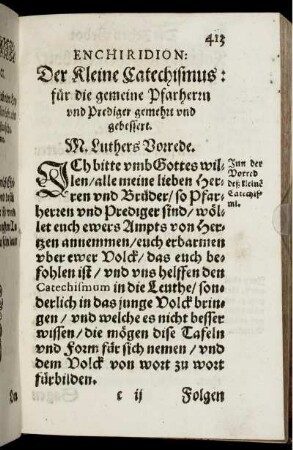 413
ENCHIRIDION:
Der Kleine Catechismus:
für die gemeine Pfarherrn
vnd Prediger gemehrt vnd
gebessert.
M. Luthers Vorrede.
ICh bitte vmb Gottes wil-
len/alle meine lieben Her-
ren vnd Brüder/ so Pfar-
herren vnd Prediger sind/ wöl-
let euch ewers Ampts von Her-
tzen annemmen/euch erbarmen
vber ewer Volck/das euch be-
fohlen ist/ vnd vns helffen den
Catechismum in die Leuthe/ son-
derlich in das junge Volck brin-
gen/ vnd welche es nicht besser
wissen/ die mögen dise Tafeln
vnd Form für sich nemen/ vnd
dem Volck von wort zu wort
fürbilden.
Inn der
Vorred
deß kleinē
Catechis-
mi.
c ij Folgen